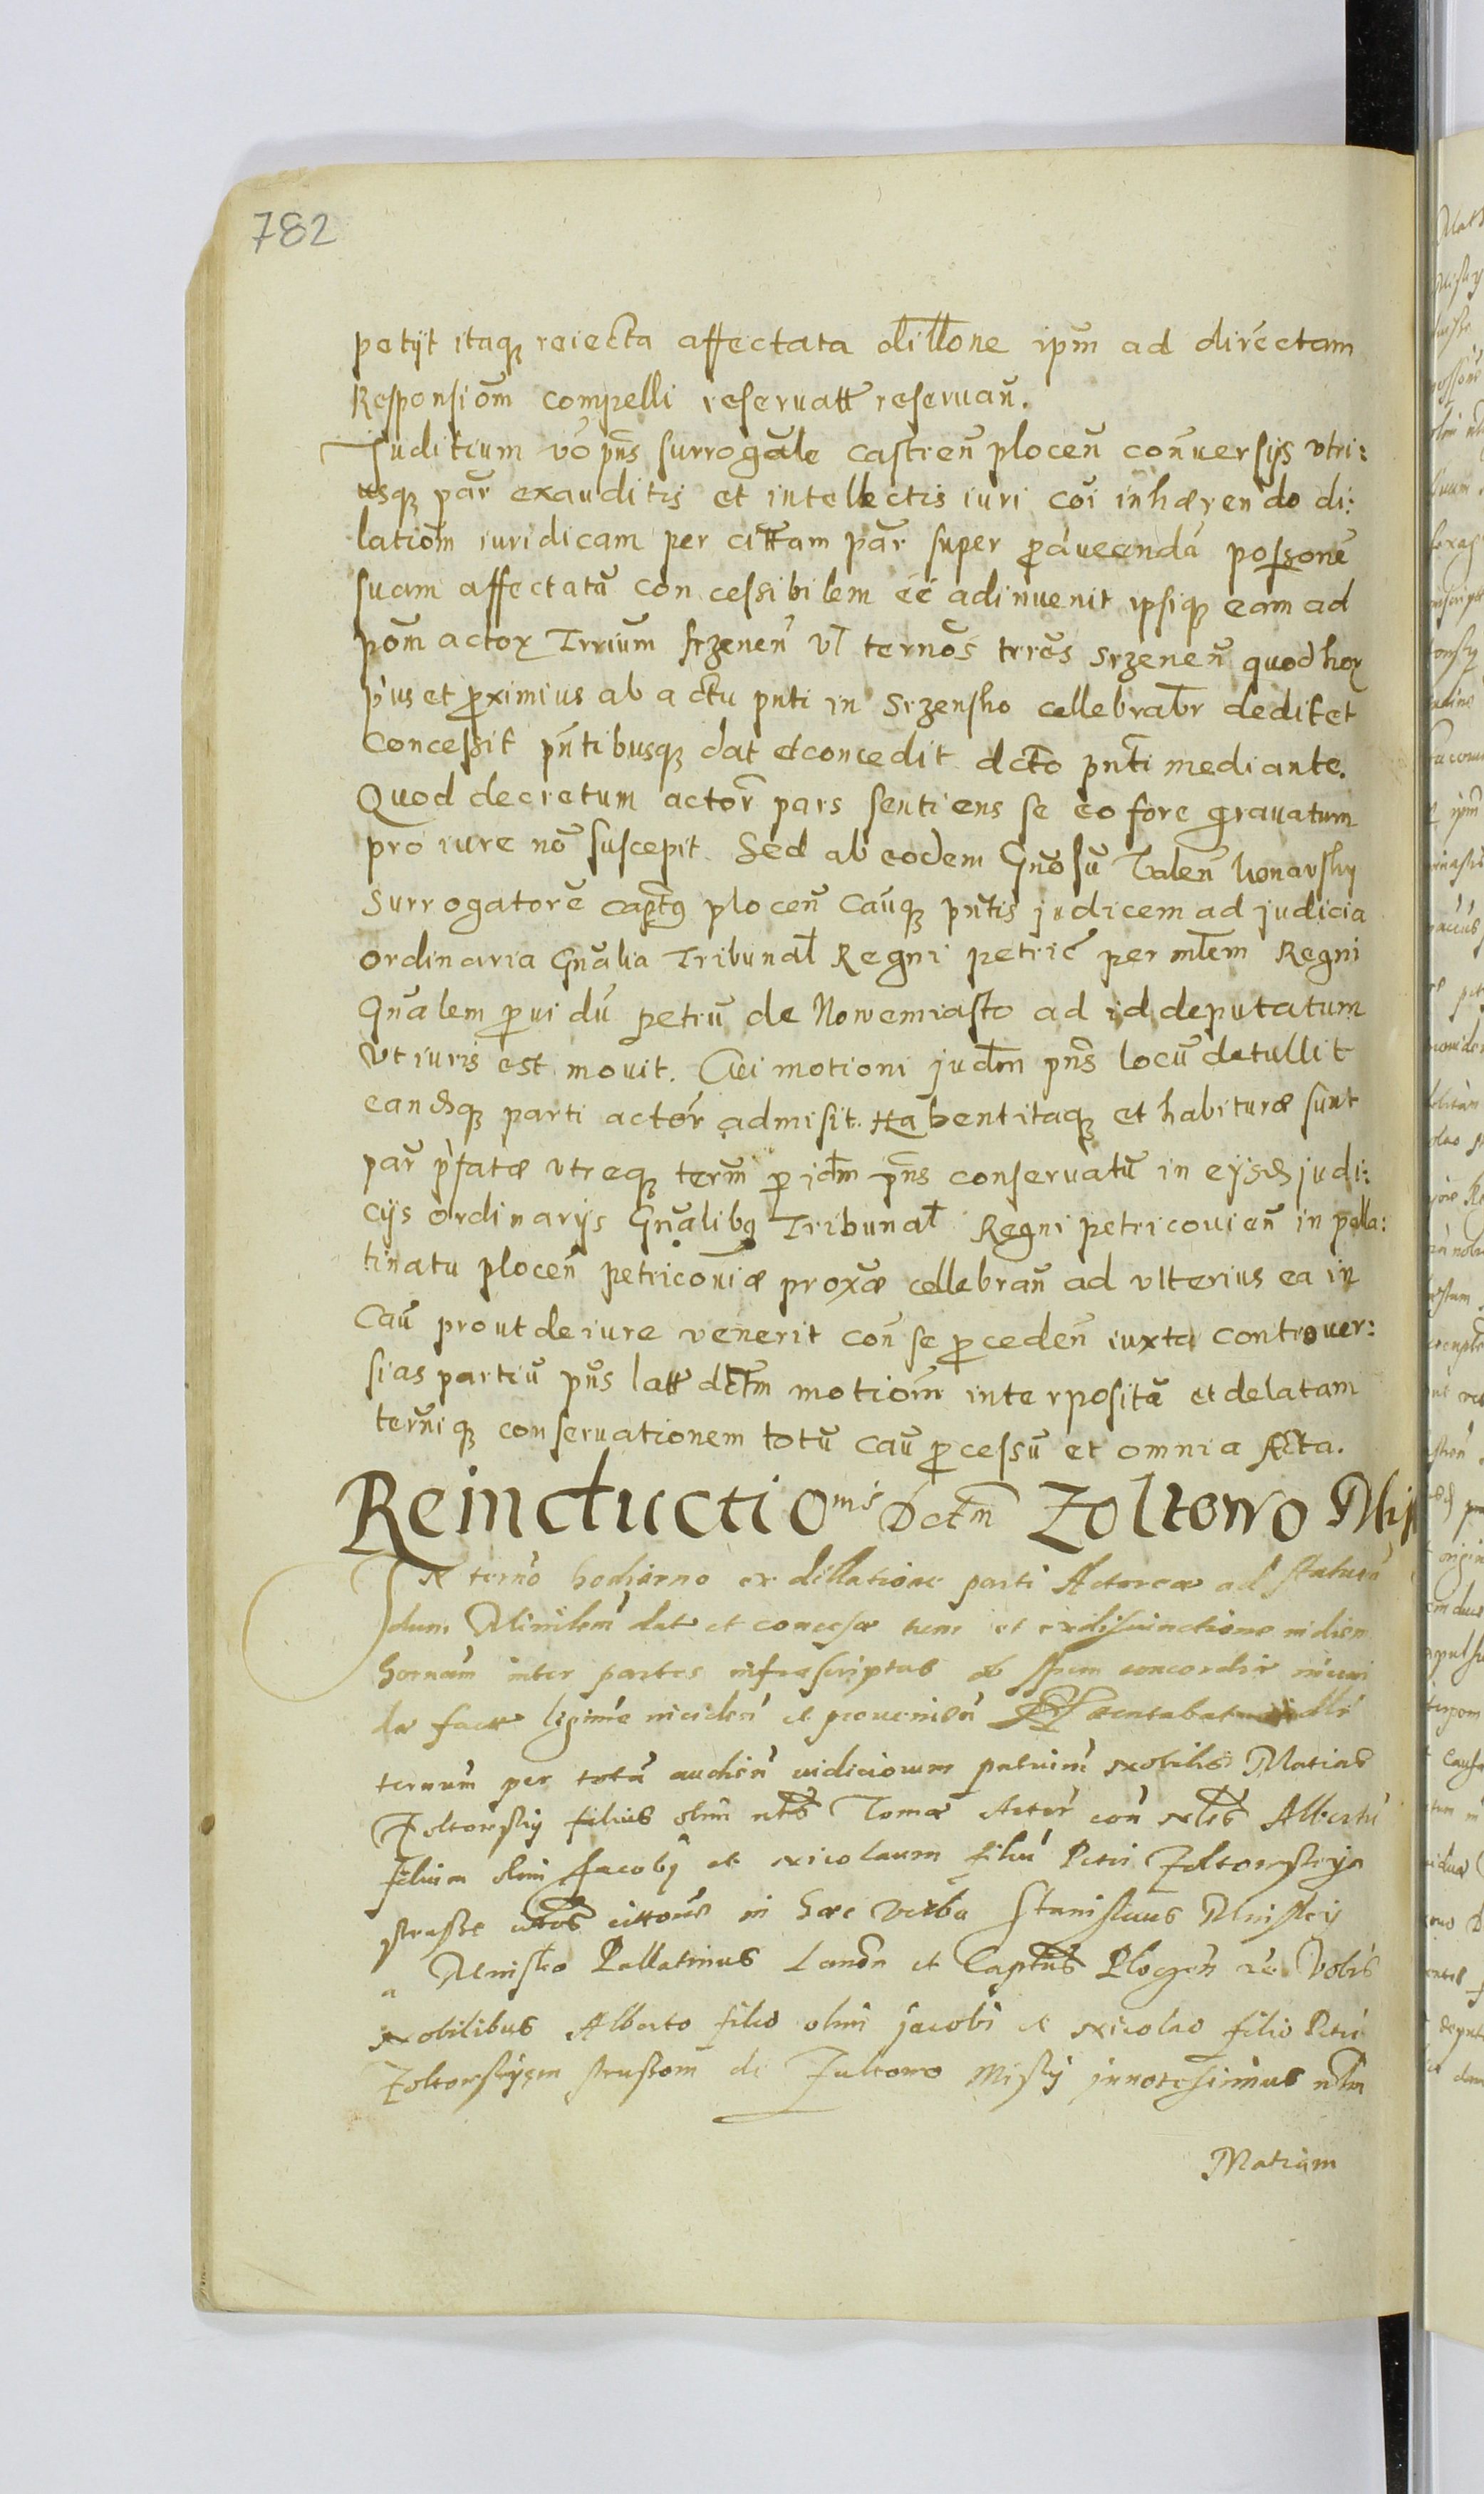 782
petijt itaq reiecta affectata dillone ipm ad directam
Responsiom compelli reseruatt reseruan.
Juditium vo pns surrogale castren plocen conuersijs vtri:
usq par exauditis et intellectis iuri coi inhærendo di:
latiom iuridicam per cittam par super possone
suam affectata concessibilem eē adinuenit ipsiq eam ad
pom actor Trrium srzenen vl ternos trrēs srzenen quod hoc
p'us et proximius ab actu pnti in Srzensko cellebrabr dedit et
Concessit pntibusq dat et concedit dcto pnti mediante.
Quod decretum actor pars sentiens se eo fore grauatum
pro iure no suscepit. Sed ab eodem Gnoso Valen konarsky
Surrogatore captus plocen Cauq pntis judicem ad judicia
ordinaria Gnalia Tribunal Regni petric per mltem Regni
Gnalem puidu petru de Nowemiasto ad id deputatum
vt iuris est mouit. Cui motioni judm pns locu detullit
eandq parti actor admisit. Habent itaq et habituræ sunt
par p'fatæ vtreq term p idm pns conseruatu in eijsd judi:
cijs ordinarijs Gnalibq Tribunal Regni petricouien in palla:
tinatu plocen petricouiæ proxæ cellebran ad vlterius ea in
Cau prout de iure venerit con se proceden iuxta controuer:
sias partiu pns latt dctm motiom interposita et delatam
terniq conseruationem totu cau processu et omnia Acta.
Reinductionis Dctm Zoltowo Mis
In terno hodierno ex dillatione parti Actoreæ ad statuen
dum Minilem dat et concessæ tum et ex disiunctione in diem
hornam inter partes infrascriptas ob spem concordiæ
dæ factæ legime inciden et prouenien
ternum per tota audien iudiciorum patuim Nobilis Matias
Zoltowsky filius olim nlis Tomæ Actor con nles Albertu
filium olim Jacobj et Nicolaum filiu Petri Zoltowskijs
cittonis in hæc Verba Stanislaus Minsky
a Minsko Pallatinus Lancn et Captus Plocen Vobis
Nobilibus Alberto filio olim jacobi et Nicolao filio Petri
Zoltowskijm de Zultowo Misky nlem
Matiam